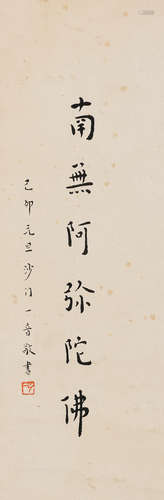 南無阿弥陀佛
己卯元旦沙门一音敬書